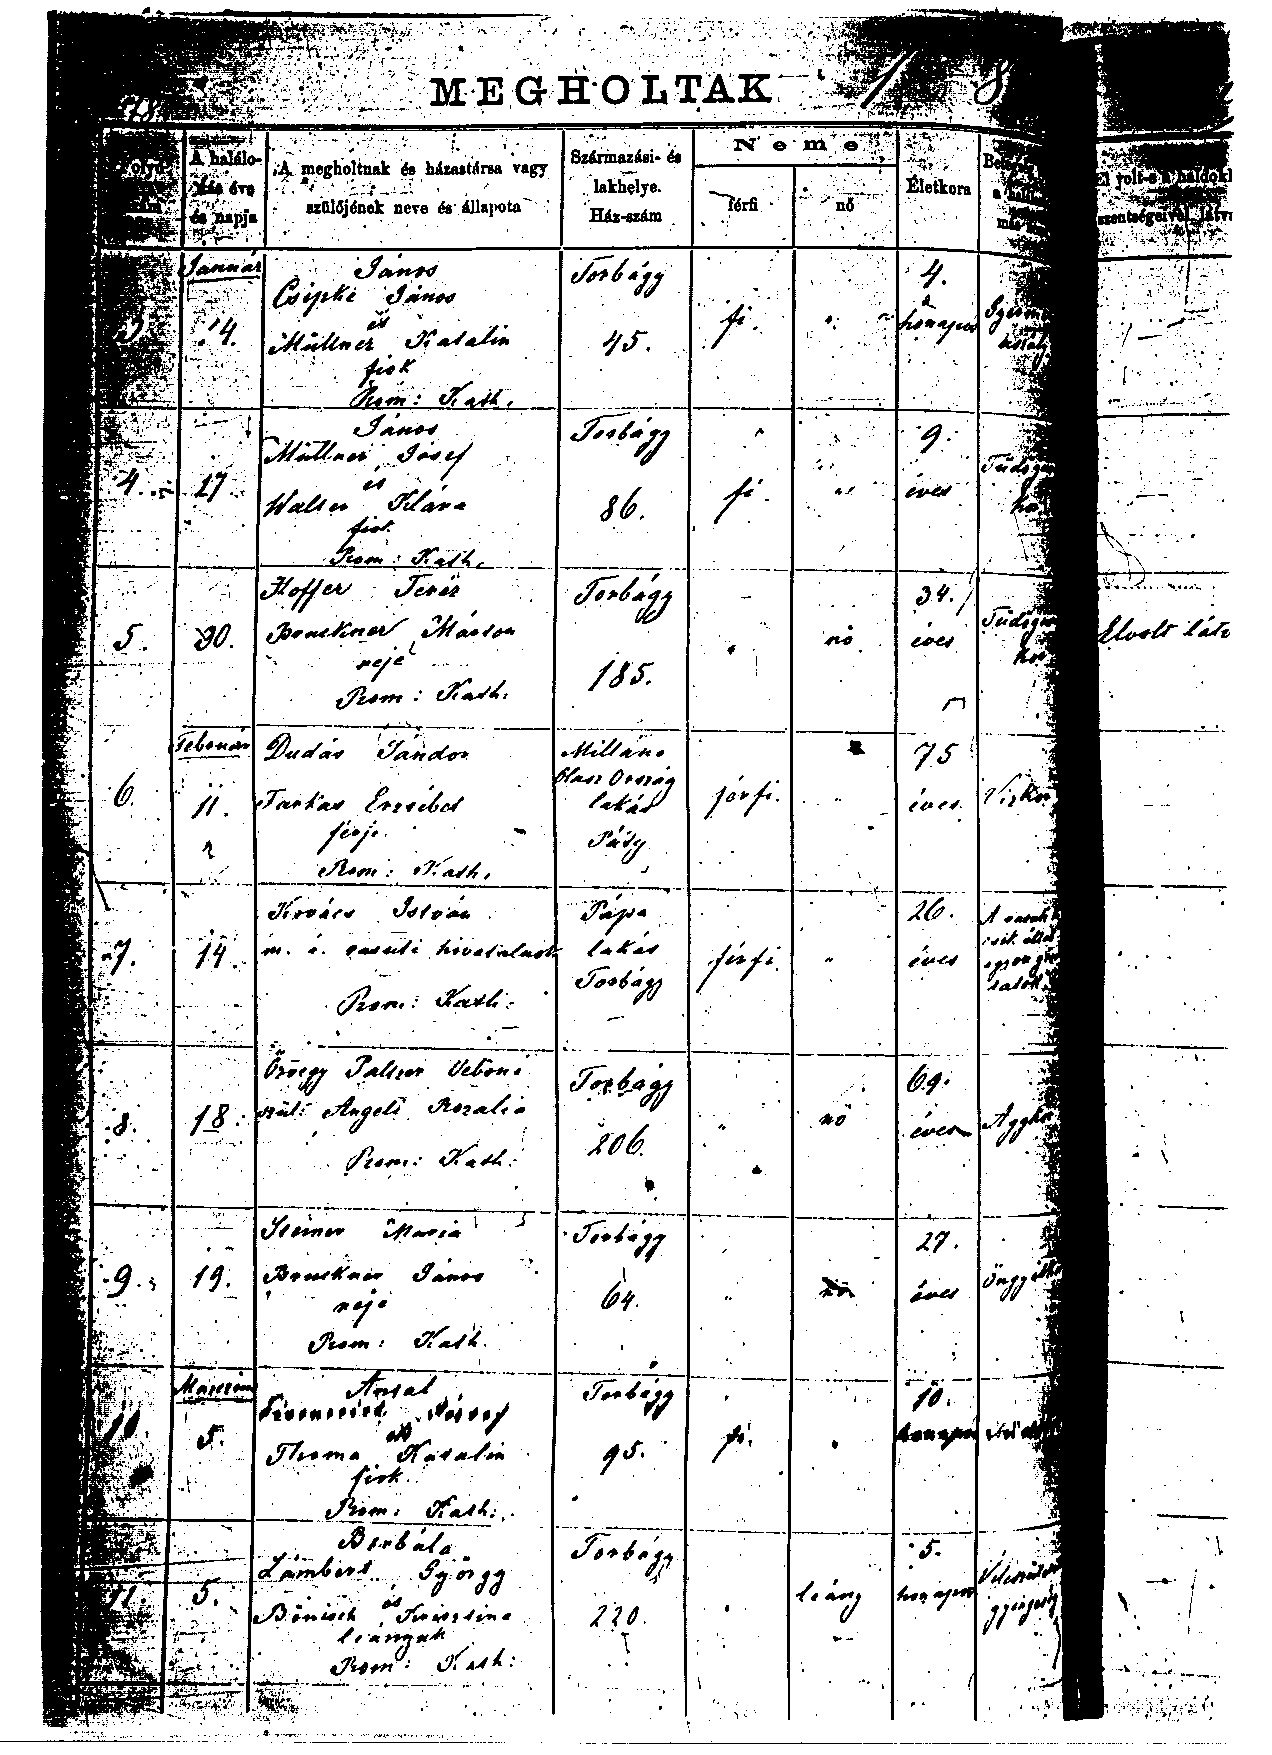 MEGHOLTAK 1 8
78
Folyó szám
A halálozás éve és napja
A megholtnak és házastársa vagy szülőjének neve és állapota
Származási- és lakhelye. Ház-szám
Neme
férfi
nő
Életkora
El volt-e a haldokl
szentségeivel látv
Január
János
Csipke János
és
Müllner Katalin
fiok
Rom: Kath.
3
14.
Torbágy
45.
fi.
4.
hónapos
János
Müllner József
és
Walser Klára
fiok
Rom: Kath.
4.
17
Torbágy
86.
fi.
9.
éves
Hoffer Teréz
Bruckner Márton
neje
Rom: Kath.
5.
30.
Torbágy
185.
nő
34.
éves
Elvolt lát
Február
Dudás Sándor
Farkas Erzsébet
férje
Rom: Kath.
6.
11.
Olasz Ország
lakás
Páty
férfi.
75
éves.
Kovács István
m. á. vasuti hivatalnok
Rom: Kath:
7.
14.
Pápa
lakás
Torbágy
férfi.
26.
éves
Özvegy
szül: Angeli Rozalia
Rom: Kath:
8.
18.
Torbágy
206.
nő
69.
éves
Steiner Mária
Bruckner János
neje
Rom: Kath.
9.
19.
Torbágy
64.
nő
27.
éves
Antal
József
és
Thoma Katalin
fiok
Rom: Kath:
10.
5.
Torbágy
95.
fi.
10.
hónapos
Borbála
Lámbert György
és
Bönisch Krisztina
leányuk
Rom: Kath:
11.
5.
Torbágy
220.
leány
5.
hónapos